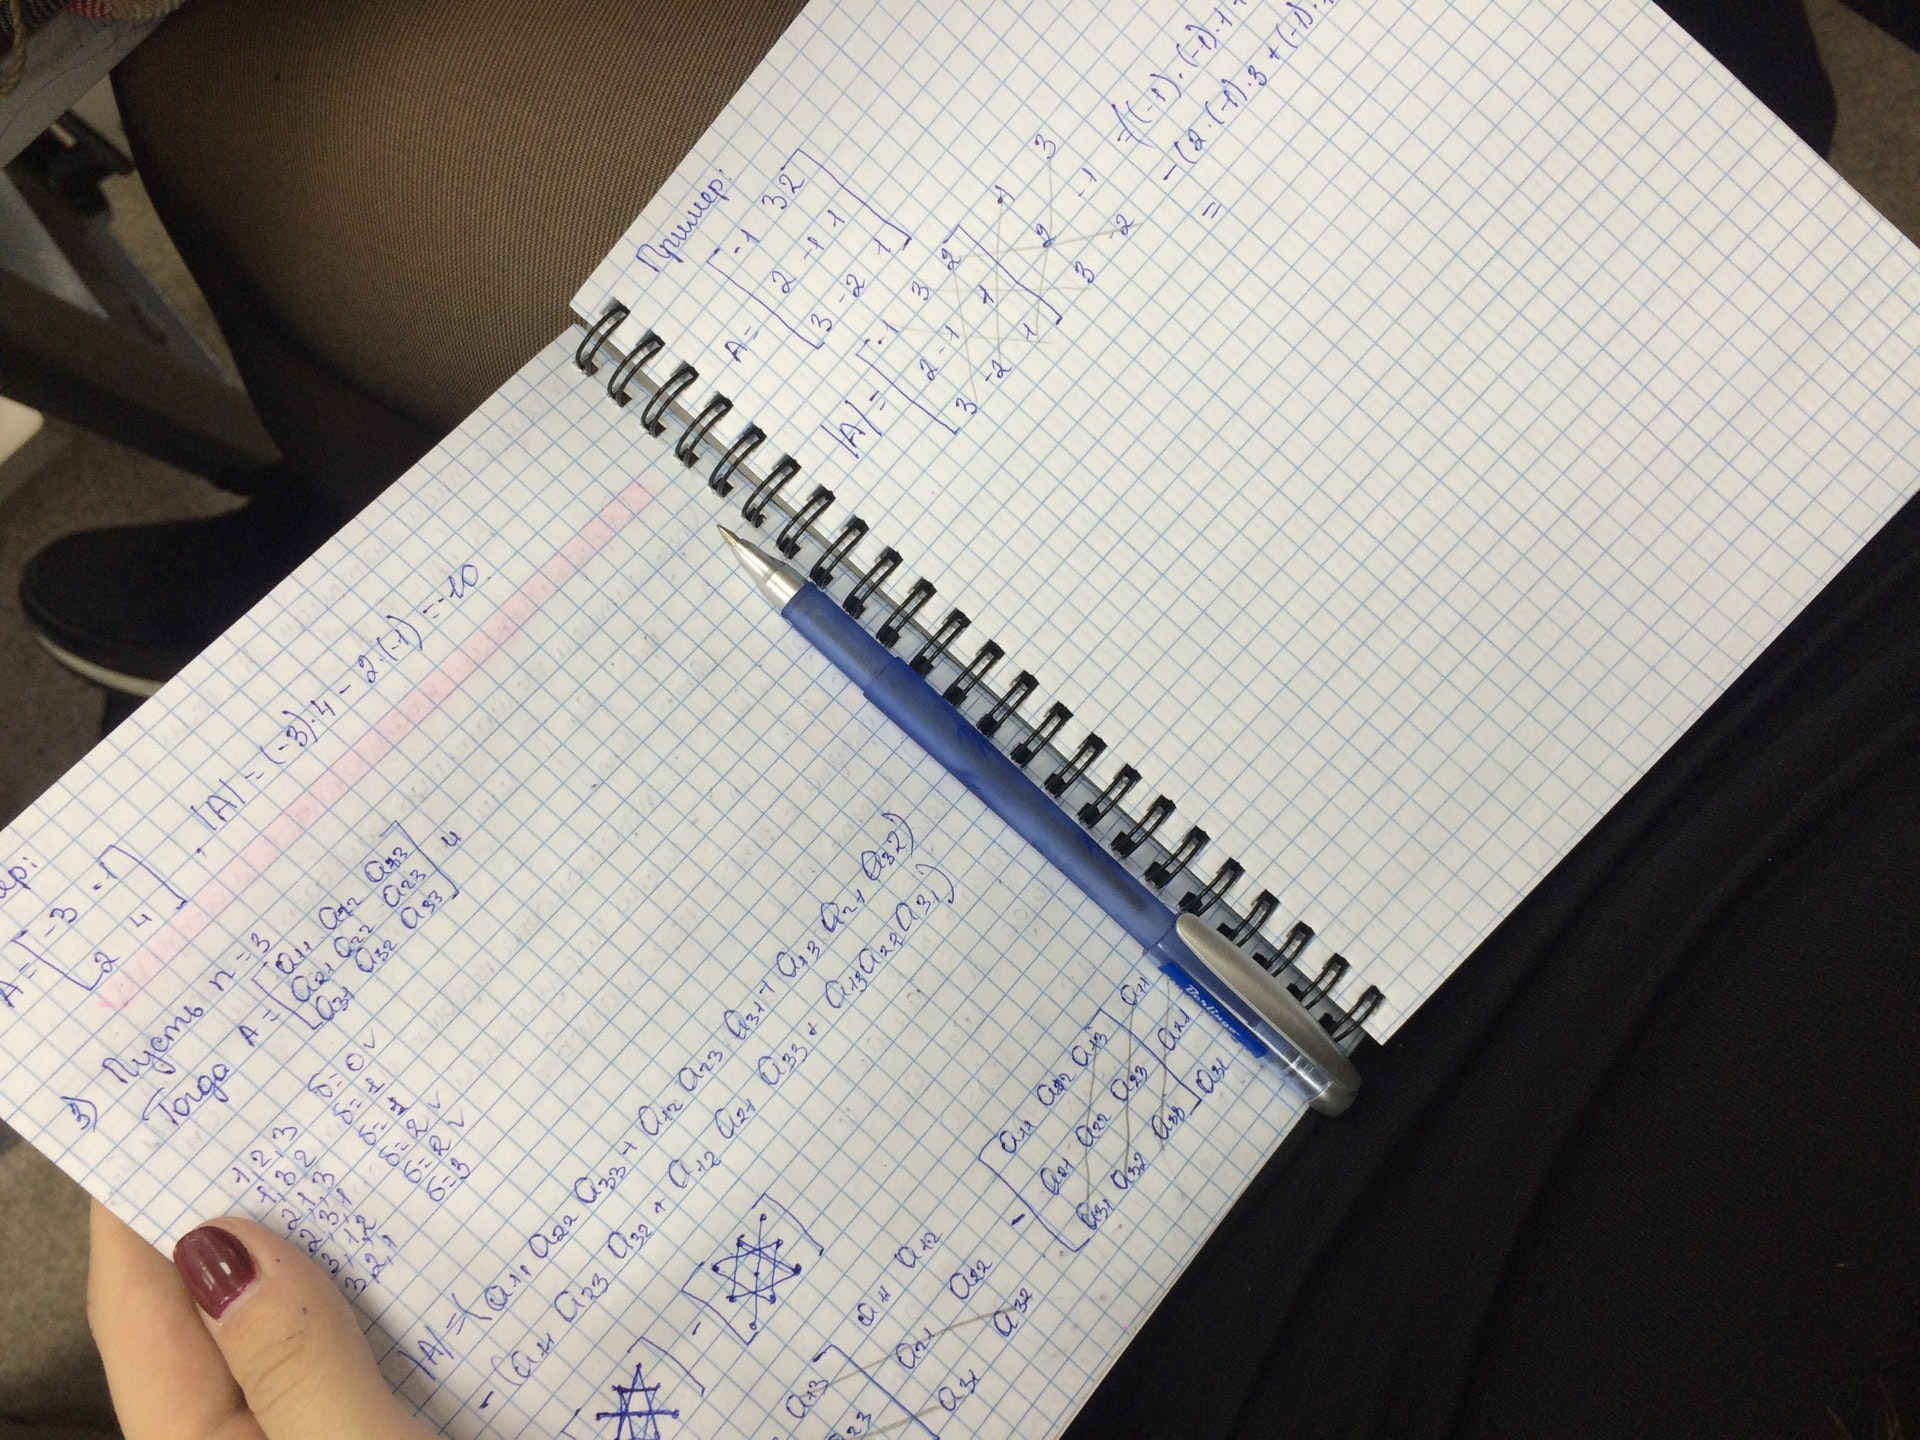 A = [-3 -1
2 4] , |A| = (-3)·4 - 2·(-1) = -10
3) Пусть n = 3
Тогда A = [a11 a12 a13
a21 a22 a23
a31 a32 a33] и
1,2,3 б=0 v
1,3,2 б=1
2,1,3 б=1
2,3,1 б=2 v
3,1,2 б=2 v
3,2,1 б=3
|A| = (a11 a22 a33 + a12 a23 a31 + a13 a21 a32)
- (a11 a23 a32 + a12 a21 a33 + a13 a22 a31)
-
a13] a11 a12
a23 a21 a22
a31 a32
- [a11 a12 a13] a11
a21 a22 a23 a21
a31 a32 a33 a31
Berlingo
Пример:
A = [-1 3 2
2 -1 1
3 -2 1]
|A| = [-1 3 2] -1 3
2 -1 1 2 -1
3 -2 1 3 -2
=((-1)·(-1)·1+
-(2·(-1)·3+(-1)·
=